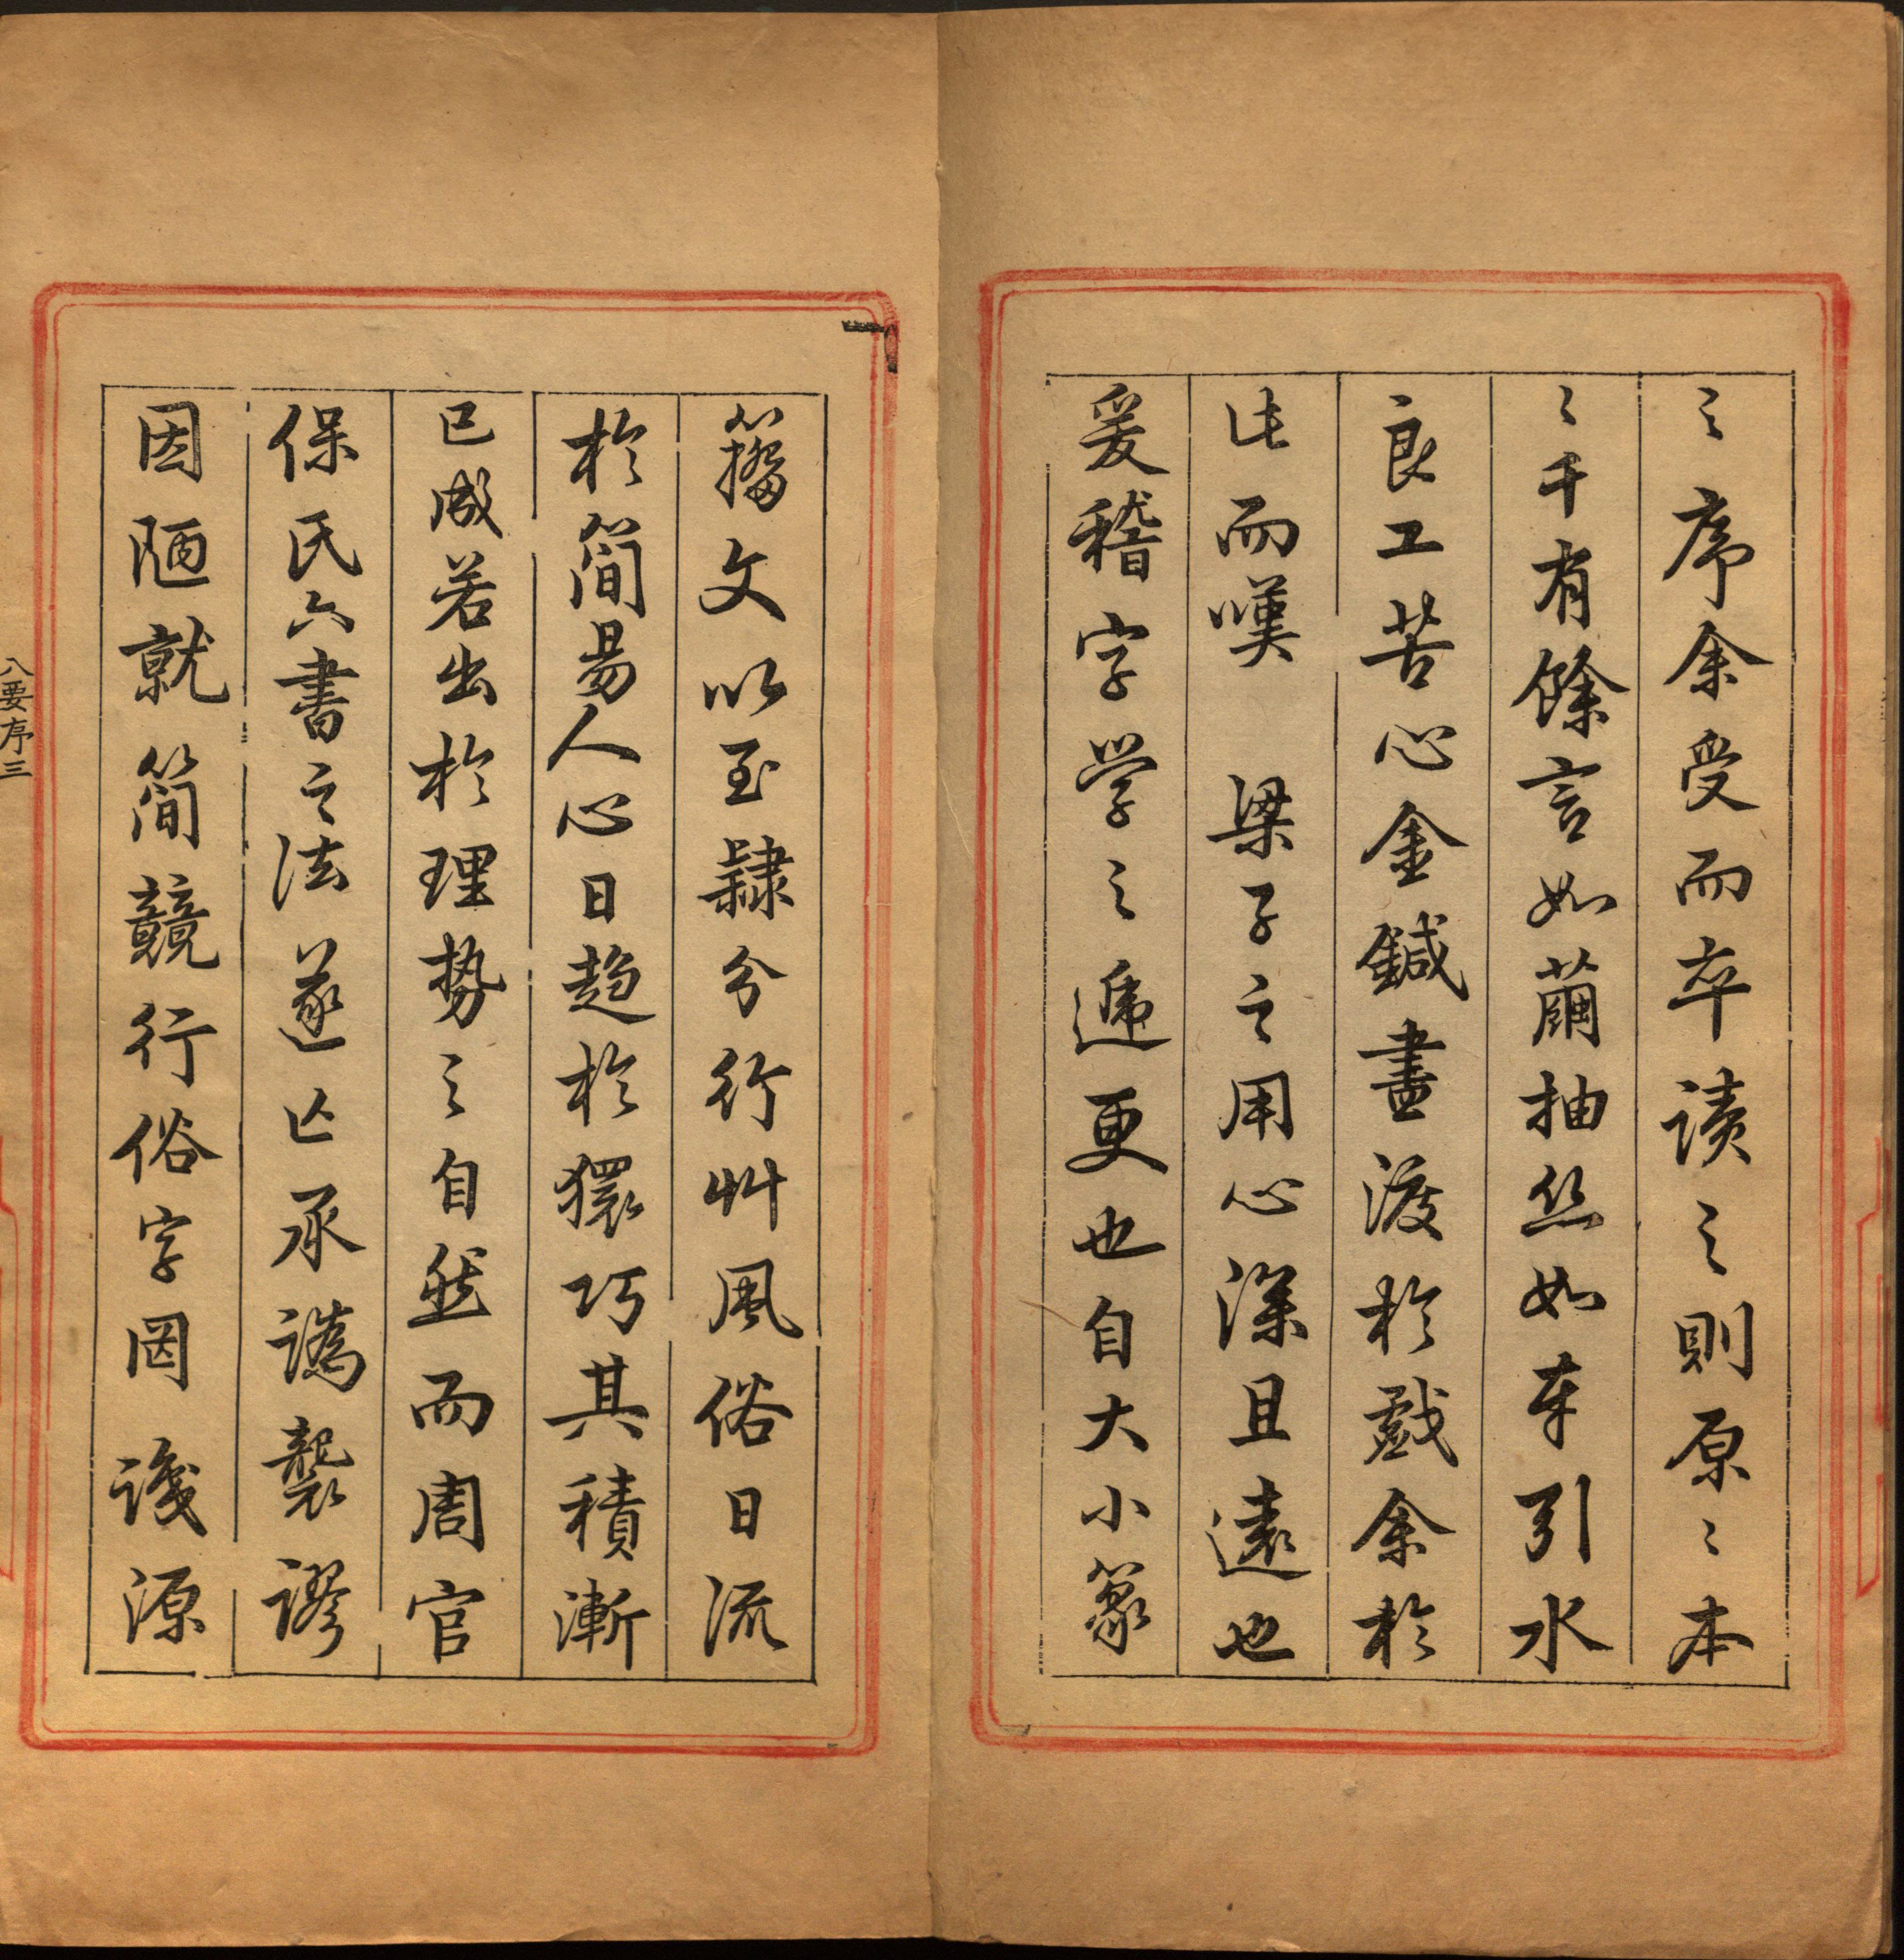 之序余受而卒讀之則原〻本
〻千有餘言如繭抽丝如車引水
良工苦心金鍼畫渡於戲余於
此而嘆 梁子之用心深且遠也
爰稽字学之遞更也自大小篆
籀文以至隸分行艸風俗日流
於簡易人心日趋於獧巧其積漸
已成若出於理勢之自然而周官
保氏六書之法遂亡承譌襲謬
因陋就簡競行俗字罔識源
八要序三